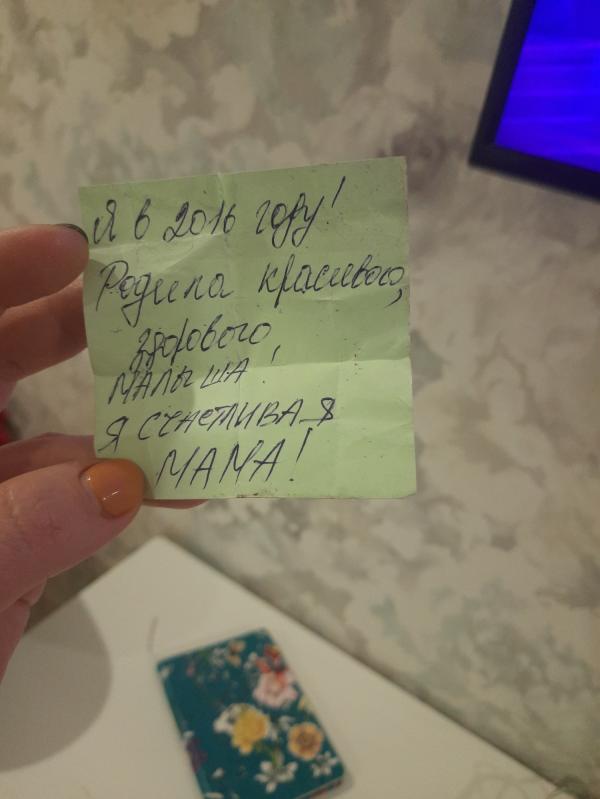 Я в 2016 году!
Родила красивого,
здорового
МАЛЫША!
Я СЧАСТЛИВАЯ
МАМА!